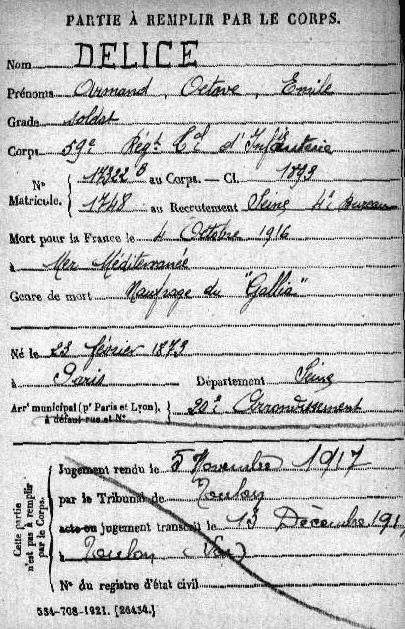 PARTIE À REMPLIR PAR LE CORPS.
Nom DELICE
Prénoms Armand, Octave, Emile
Grade soldat
Corps 59e Régt Cal d'Infanterie
N° Matricule. { 17322 B au Corps. — Cl. 1893
1748 au Recrutement Seine 4e Bureau
Mort pour la France le 4 Octobre 1916
à Mer Méditerranée
Genre de mort Naufrage du "Gallia"
Né le 23 février 1873
à Paris Département Seine
Arrt municipal (pr Paris et Lyon), à défaut rue et N° } 20e Arrondissement
Cette partie n'est pas à remplir par le Corps.
Jugement rendu le 5 Novembre 1917
par le Tribunal de Toulon
acte ou jugement transcrit le 13 Décembre 1917
à Toulon (Var)
N° du registre d'état civil
534-708-1921. [26434.]